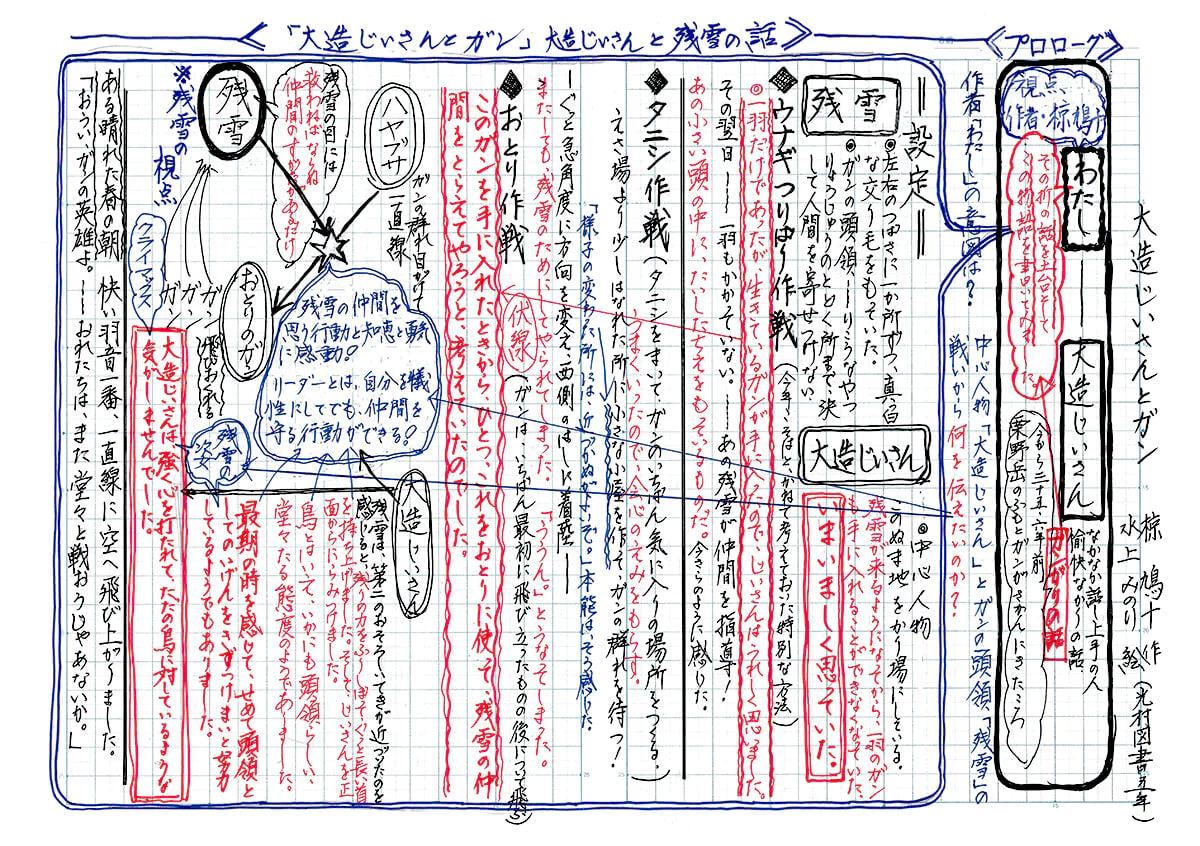 大造じいさんとガン
椋 鳩十 作
水上みのり 絵
(光村図書五年)
《プロローグ》
視点
作者・椋鳩十
わたし
大造じいさん
なかなか話し上手の人
愉快ながりの話
ガンがりの話
今から三十五、六年前
栗野岳のふもとガンがさかんにきたころ
その折の話を土台として
この物語を書いてみました。
作者「わたし」の意図は?
中心人物「大造じいさん」とガンの頭領「残雪」の
戦いから何を伝えたいのか?
《「大造じいさんとガン」大造じいさんと残雪の話》
=設定=
残雪
◎左右のつばさに一か所ずつ、真白
な交り毛をもっていた。
◎ガンの頭領――りこうなやつ
りょうじゅうのとどく所まで、決
して人間を寄せつけない。
大造じいさん
◎中心人物
このぬま地をかり場にしている。
残雪が来るようになってから、一羽のガン
も手に入れることができなくなっていた。
いまいましく思っていた。
◆ウナギつりばり作戦(今年こそはと、かねて考えておいた特別な方法)
◎一羽だけであったが、生きているガンが手に入ったので、じいさんはうれしく思いました。
その翌日――一羽もかかっていない。――あの残雪が仲間を指導!
あの小さい頭の中に、たいしたちえをもっているものだ。今さらのように感じた。
◆タニシ作戦(タニシをまいて、ガンのいちばん気に入りの場所をつくる。)
うまくいったので、会心のえみをもらす。
えさ場より少しはなれた所に小さな小屋を作って、ガンの群れを待つ!
「様子の変わった所には、近づかぬがよいぞ。」本能はそう感じた。
―ぐっと急角度に方向を変え、西側のはしに着陸―
またしても、残雪のためにしてやられてしまった。「ううん。」とうなってしまった。
◆おとり作戦
伏線
(ガンは、いちばん最初に飛び立ったものの後について飛ぶ)
このガンを手に入れたときから、ひとつ、これをおとりに使って、残雪の仲
間をとらえてやろうと、考えていたのでした。
ガンの群れ目がけて
一直線
ハヤブサ
残雪の目には
救わねばならぬ
仲間のすがたがあるだけ
残雪
※残雪の
視点
おとりのガン
ガン
ガン
ガン
飛びおくれる
残雪の仲間を
思う行動と知恵と勇気
に感動!
リーダーとは、自分を犠
牲にしてでも、仲間を
守る行動ができる!
大造じいさん
残雪の
姿
残雪は、第二のおそろしいてきが近づいたのを
感じると、残りの力をふりしぼって、ぐっと長い首
を持ち上げました。そして、じいさんを正
面からにらみつけました。
鳥とはいえ、いかにも頭領らしい、
堂々たる態度のようでありました。
最期の時を感じて、せめて頭領と
してのいげんをきずつけまいと努力
しているようでもありました。
クライマックス
大造じいさんは、強く心を打たれて、ただの鳥に対しているような
気がしませんでした。
ある晴れた春の朝 快い羽音一番、一直線に空へ飛び上がりました。
「おうい、ガンの英雄よ。――おれたちは、また堂々と戦おうじゃあないか。」